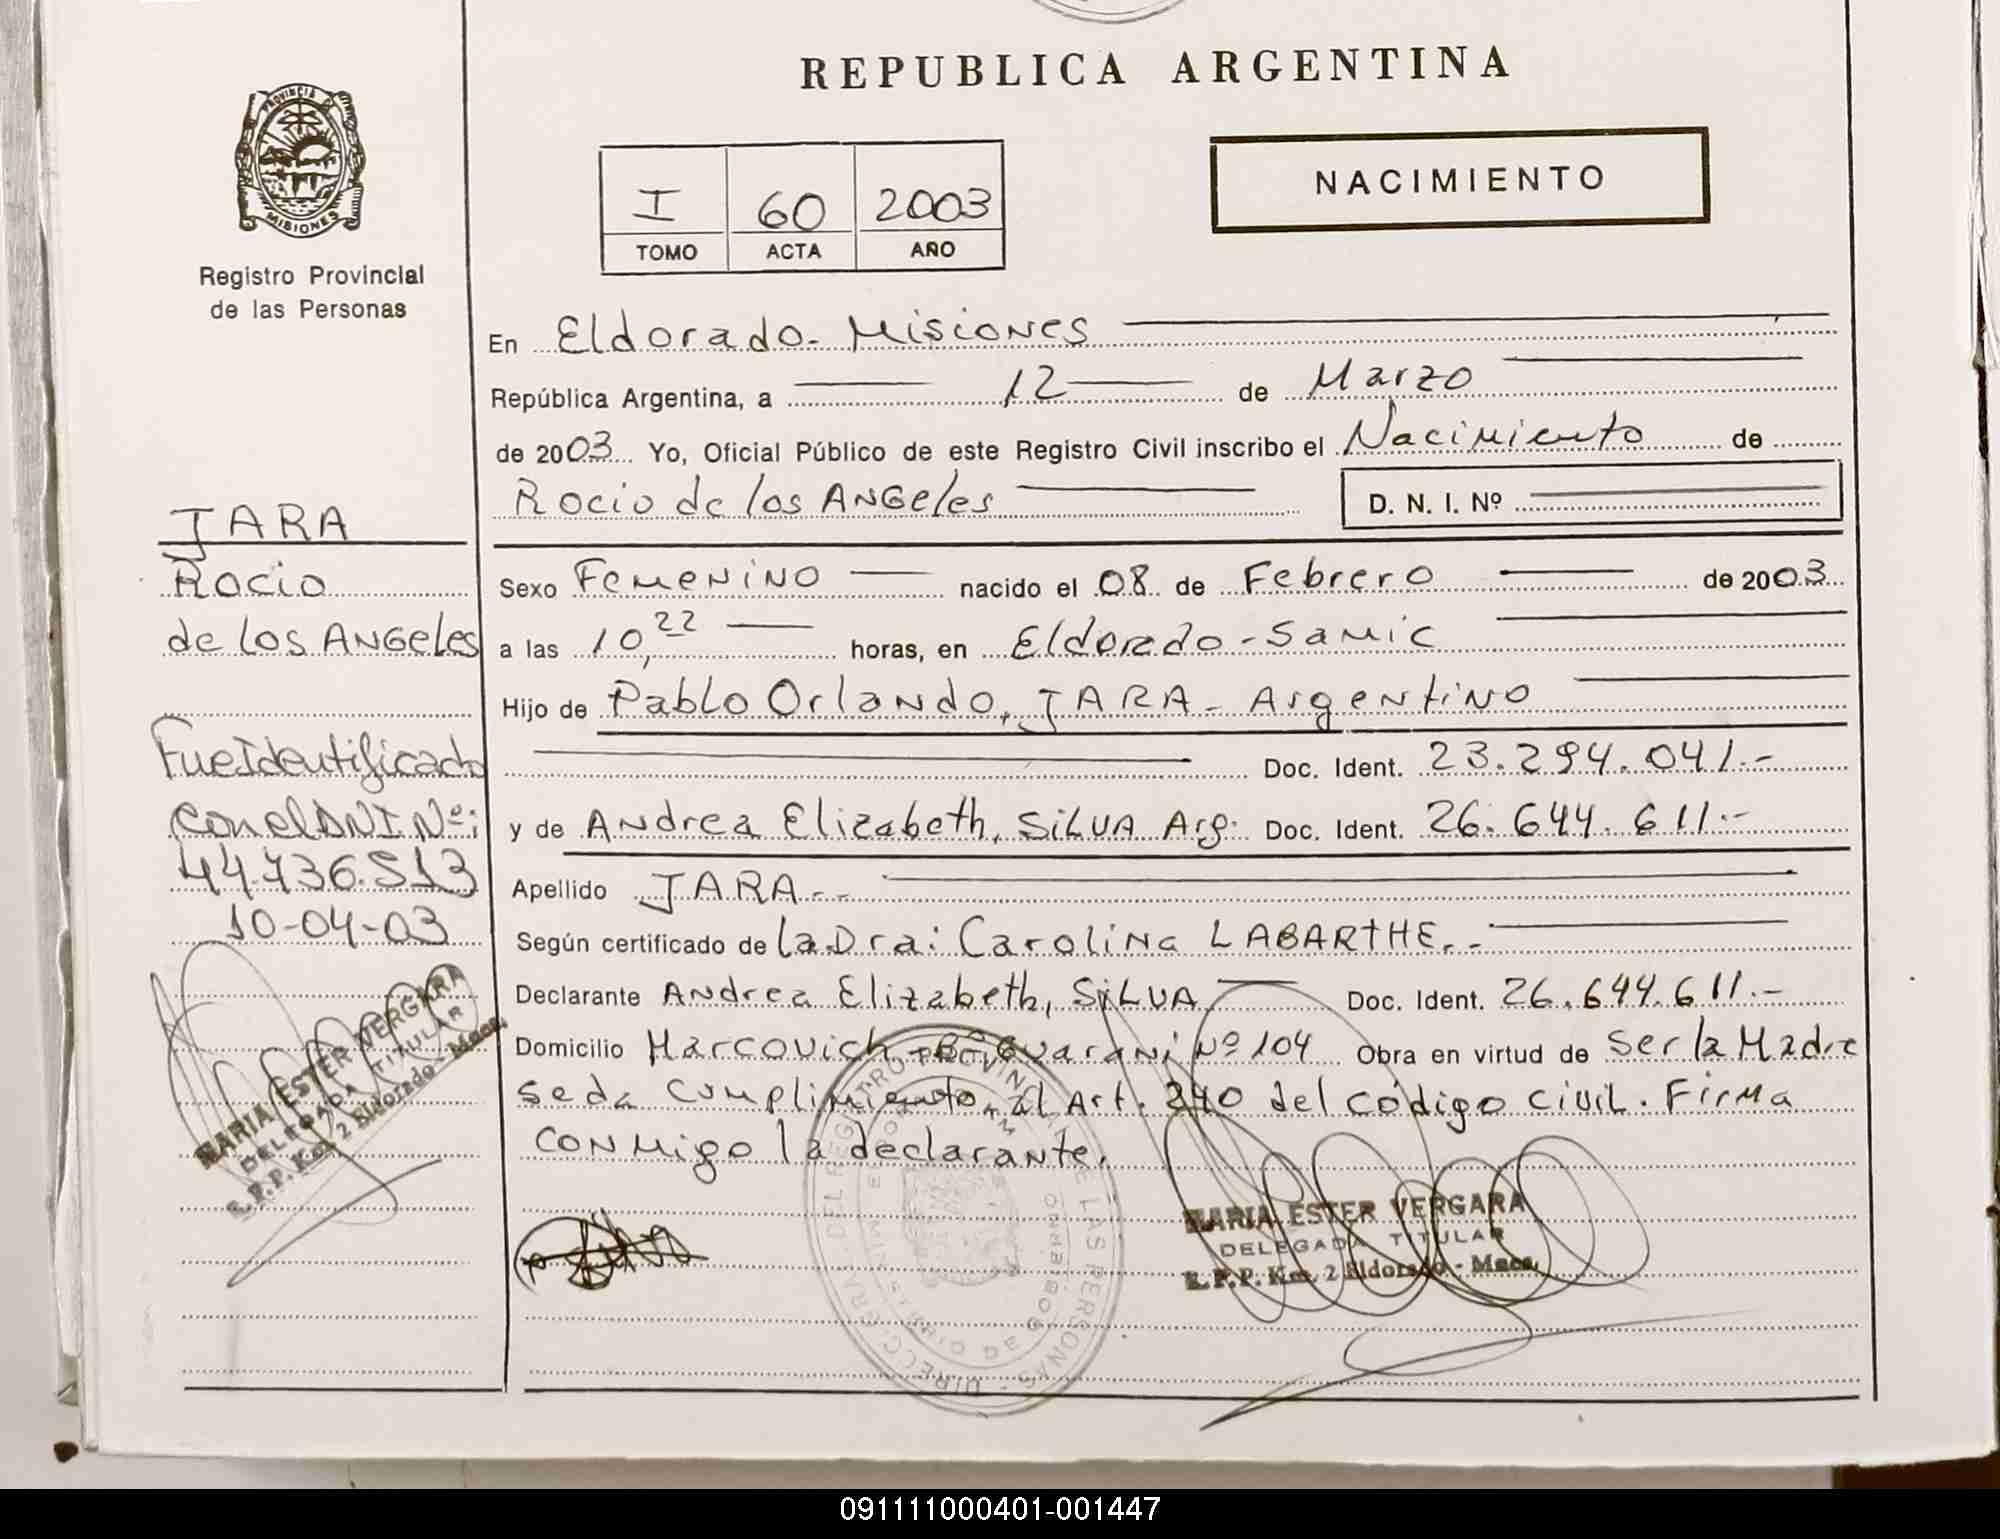 REPUBLICA ARGENTINA
PROVINCIA DE
MISIONES
Registro Provincial
de las Personas
I 60 2003
TOMO ACTA AÑO
NACIMIENTO
En Eldorado - Misiones
República Argentina, a 12 de Marzo
de 2003 Yo, Oficial Público de este Registro Civil inscribo el Nacimiento de
Rocio de los ANGeles
D. N. I. Nº
Sexo Femenino nacido el 08 de Febrero de 2003
a las 10,22 horas, en Eldorado - Samic
Hijo de Pablo Orlando, JARA - Argentino
Doc. Ident. 23.294.041.-
y de Andrea Elizabeth, SILVA Arg. Doc. Ident. 26.644.611.-
Apellido JARA.-
Según certificado de la Dra: Carolina LABARTHE.-
Declarante Andrea Elizabeth, SILVA Doc. Ident. 26.644.611.-
Domicilio Marcovich - Bº Guarani Nº 104 Obra en virtud de Ser la Madre
se da cumplimiento al Art. 240 del código civil. Firma
conmigo la declarante.
MARIA ESTER VERGARA
DELEGADA TITULAR
R.P.P. Km. 2 Eldorado - Mnes.
JARA
Rocio
de los ANGeles
Fue Identificado
con el DNI Nº:
44.736.513
10-04-03
MARIA ESTER VERGARA
DELEGADA TITULAR
R.P.P. Km. 2 Eldorado - Mnes.
DIRECC. GRAL. DEL REGISTRO PROVINCIAL DE LAS PERSONAS
MINISTERIO DE GOBIERNO
091111000401-001447